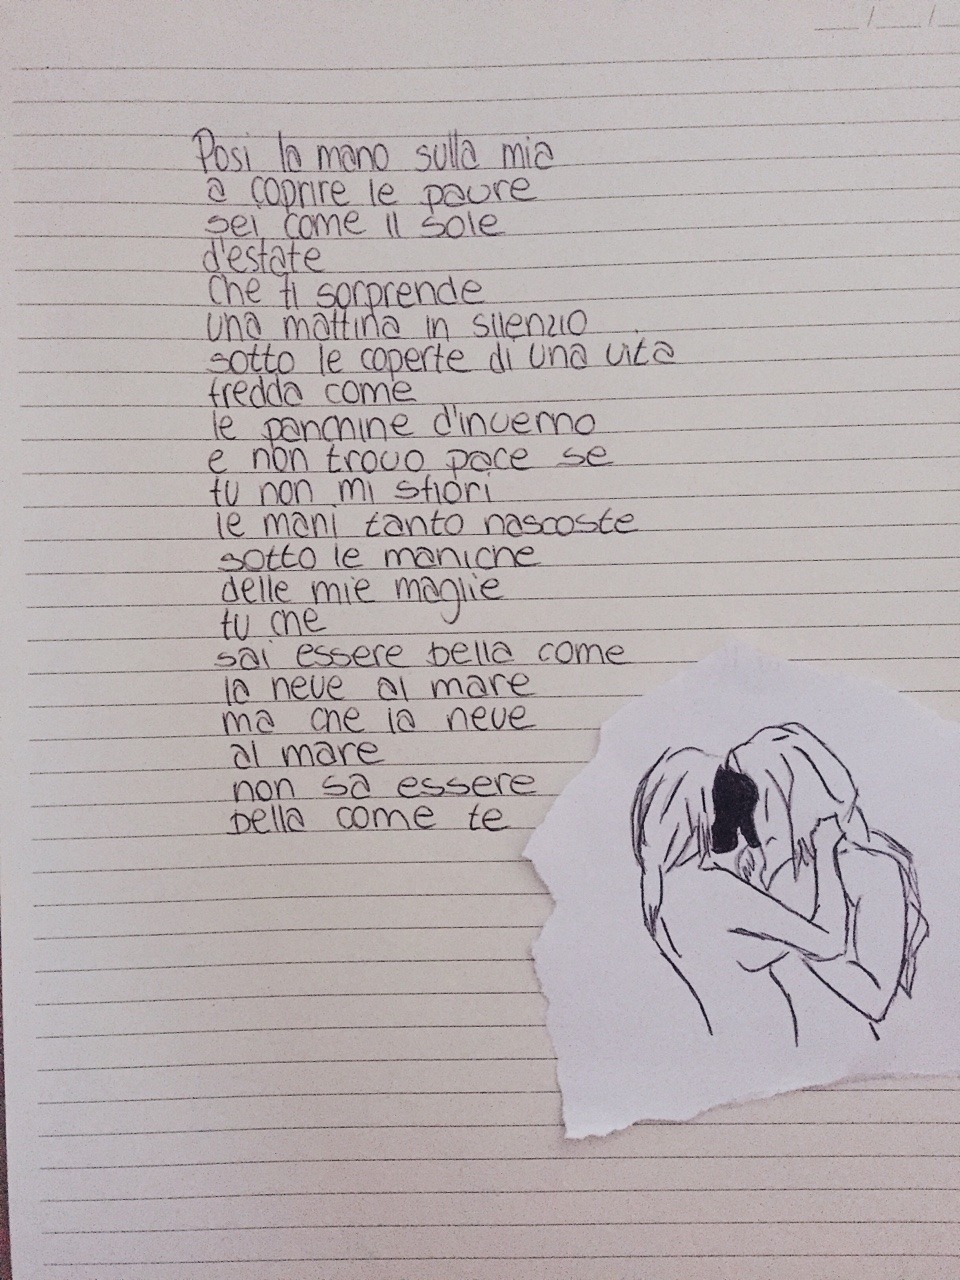 Posi la mano sulla mia
a coprire le paure
sei come il sole
d'estate
che ti sorprende
una mattina in silenzio
sotto le coperte di una vita
fredda come
le panchine d'inverno
e non trovo pace se
tu non mi sfiori
le mani tanto nascoste
sotto le maniche
delle mie maglie
tu che
sai essere bella come
la neve al mare
ma che la neve
al mare
non sa essere
bella come te